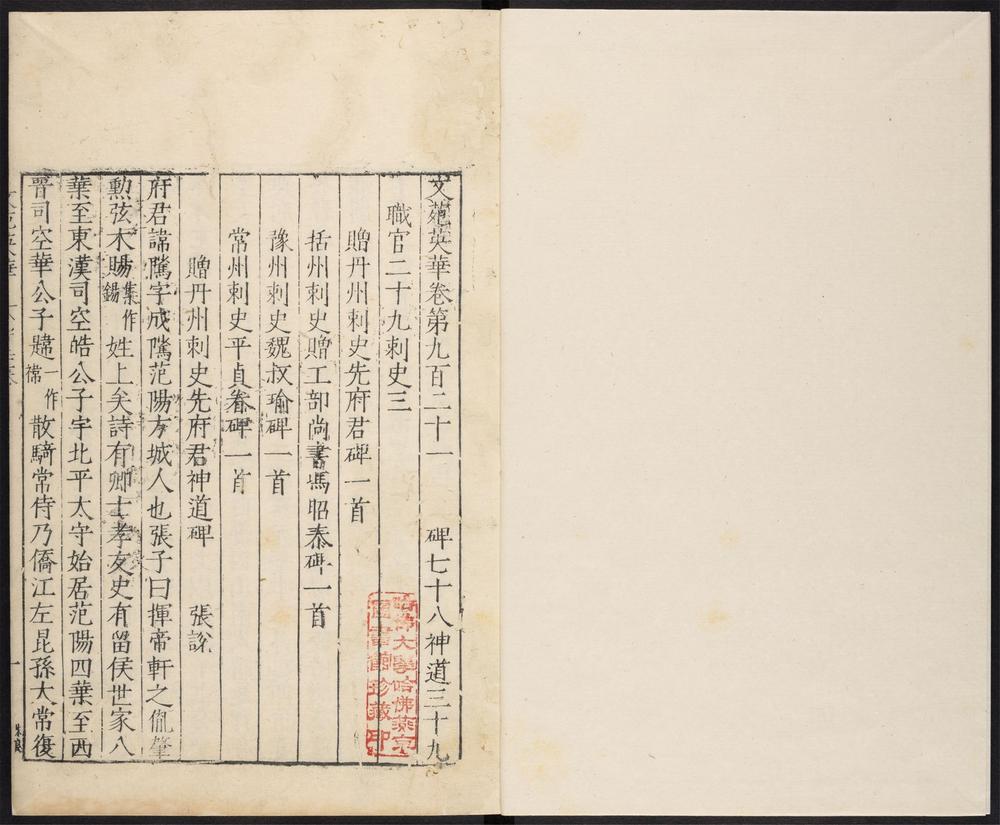 文苑英華卷第九百二十一 碑七十八神道三十九
職官二十九刺史三
贈丹州刺史先府君碑一首
括州刺史贈工部尚書馮昭泰碑一首
豫州刺史魏叔瑜碑一首
常州刺史平貞眘碑一首
贈丹州刺史先府君神道碑 張說
府君諱騭字成騭范陽方城人也張子曰揮帝軒之胤肇
勲弦木賜集作錫姓上矣詩有卿士孝友史有留侯世家八
葉至東漢司空皓公子宇北平太守始居范陽四葉至西
晉司空華公子韙一作禕散騎常侍乃僑江左昆孫大常復
一
哈佛大學哈佛燕京
圖書館珍藏印